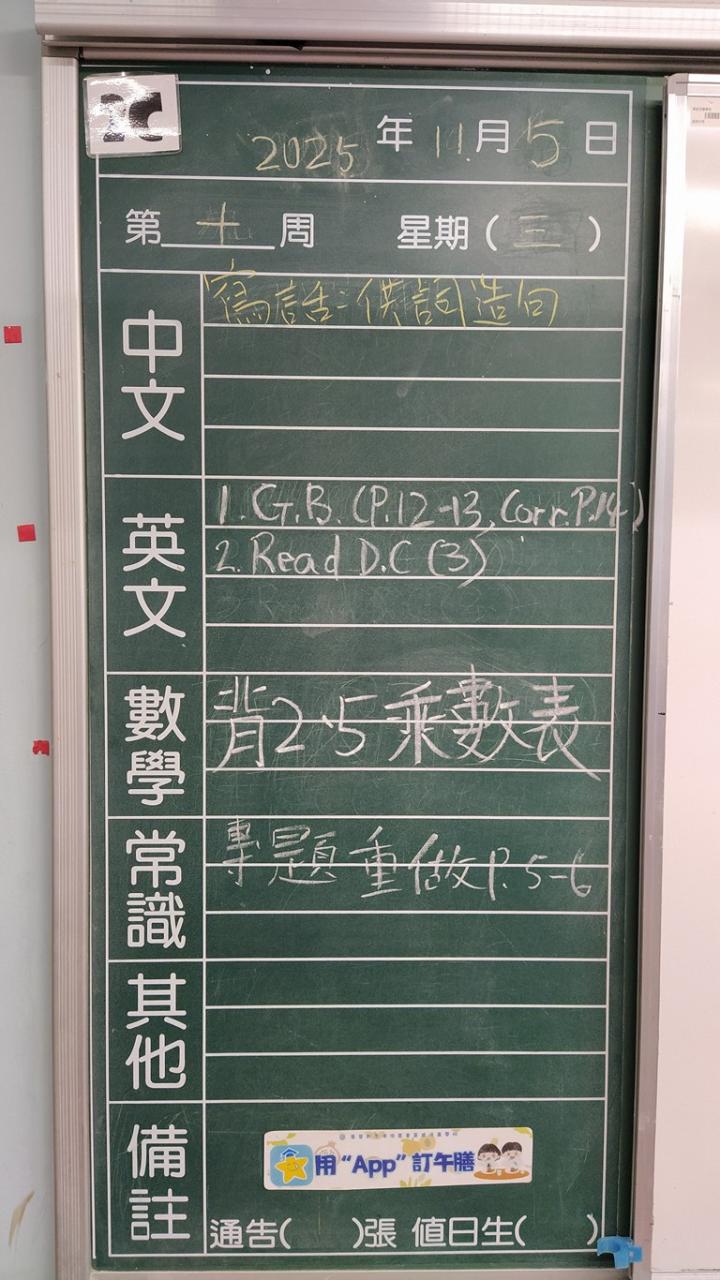 2C
2025年11月5日
第十周 星期(三)
中文
寫話:供詞造句
英文
1. G.B. (P.12-13, Corr.P.14)
2. Read D.C (3)
數學
背2、5乘數表
常識
專題重做P.5-6
其他
備註
用“App”訂午膳
通告( )張 值日生( )